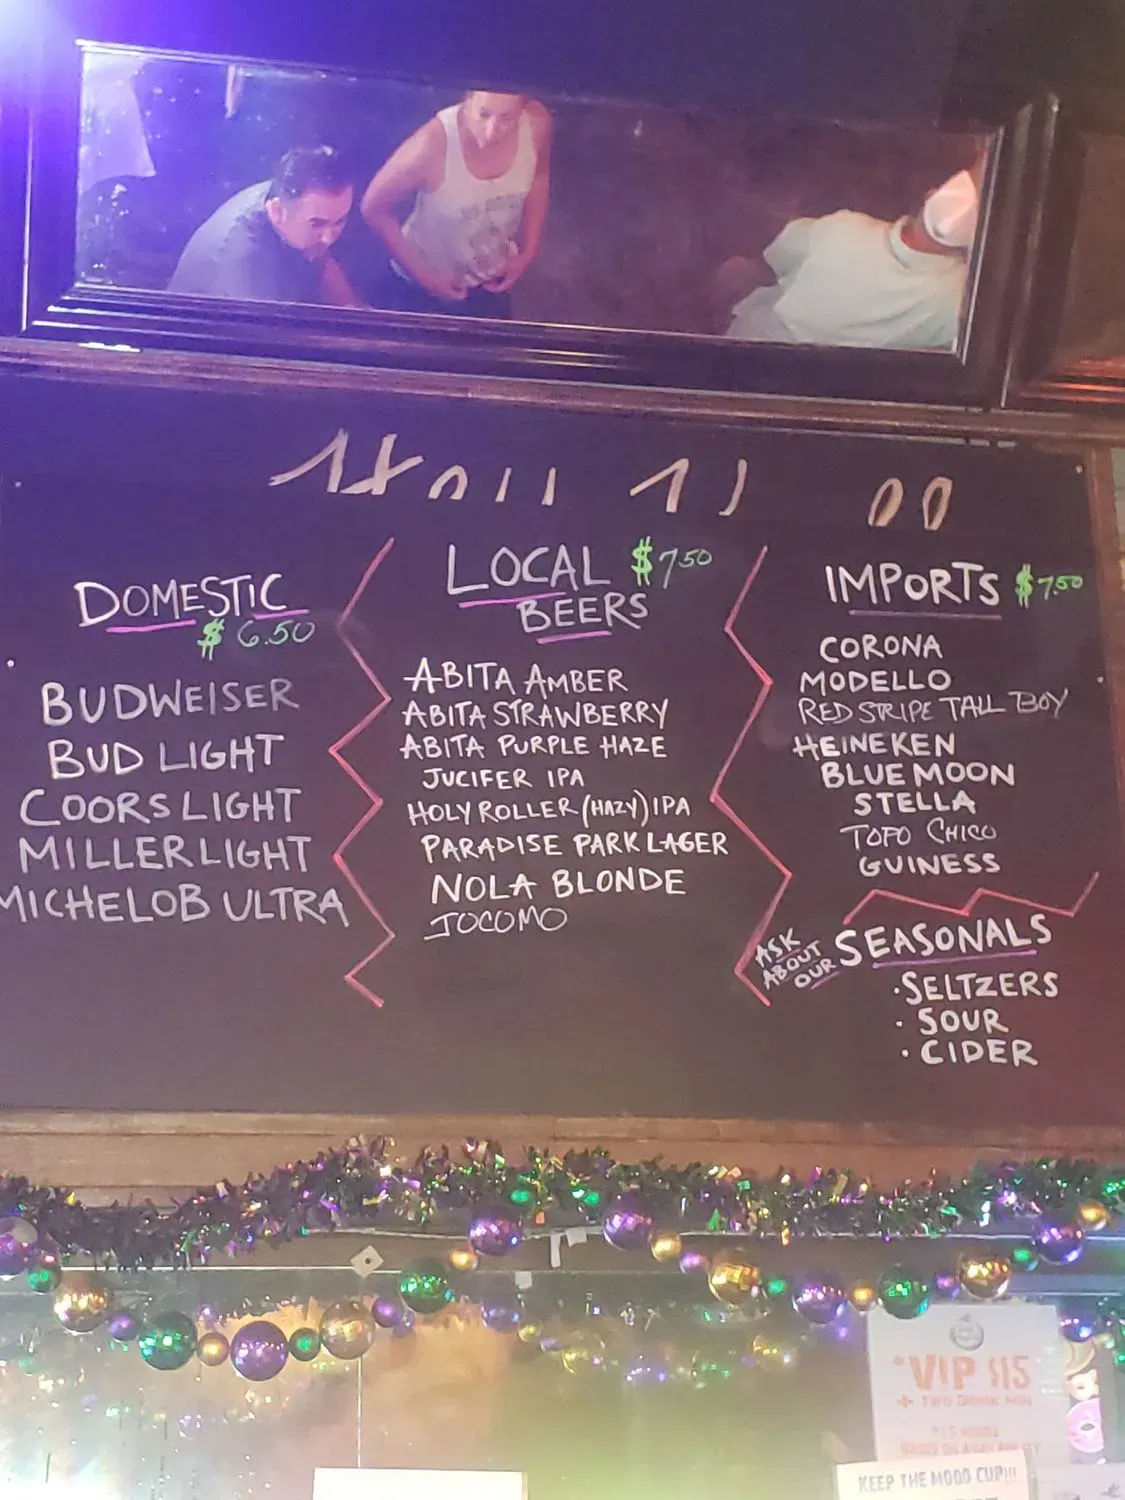 DOMESTIC
$ 6.50
BUDWEISER
BUD LIGHT
COORS LIGHT
MILLER LIGHT
MICHELOB ULTRA
LOCAL $7.50
BEERS
ABITA AMBER
ABITA STRAWBERRY
ABITA PURPLE HAZE
JUCIFER IPA
HOLY ROLLER (HAZY) IPA
PARADISE PARK LAGER
NOLA BLONDE
JOCOMO
IMPORTS $7.50
CORONA
MODELLO
RED STRIPE TALL BOY
HEINEKEN
BLUE MOON
STELLA
TOPO CHICO
GUINESS
ASK
ABOUT
OUR
SEASONALS
· SELTZERS
· SOUR
· CIDER
VIP $15
TWO DRINK MIN
KEEP THE MOOD CUP!!!